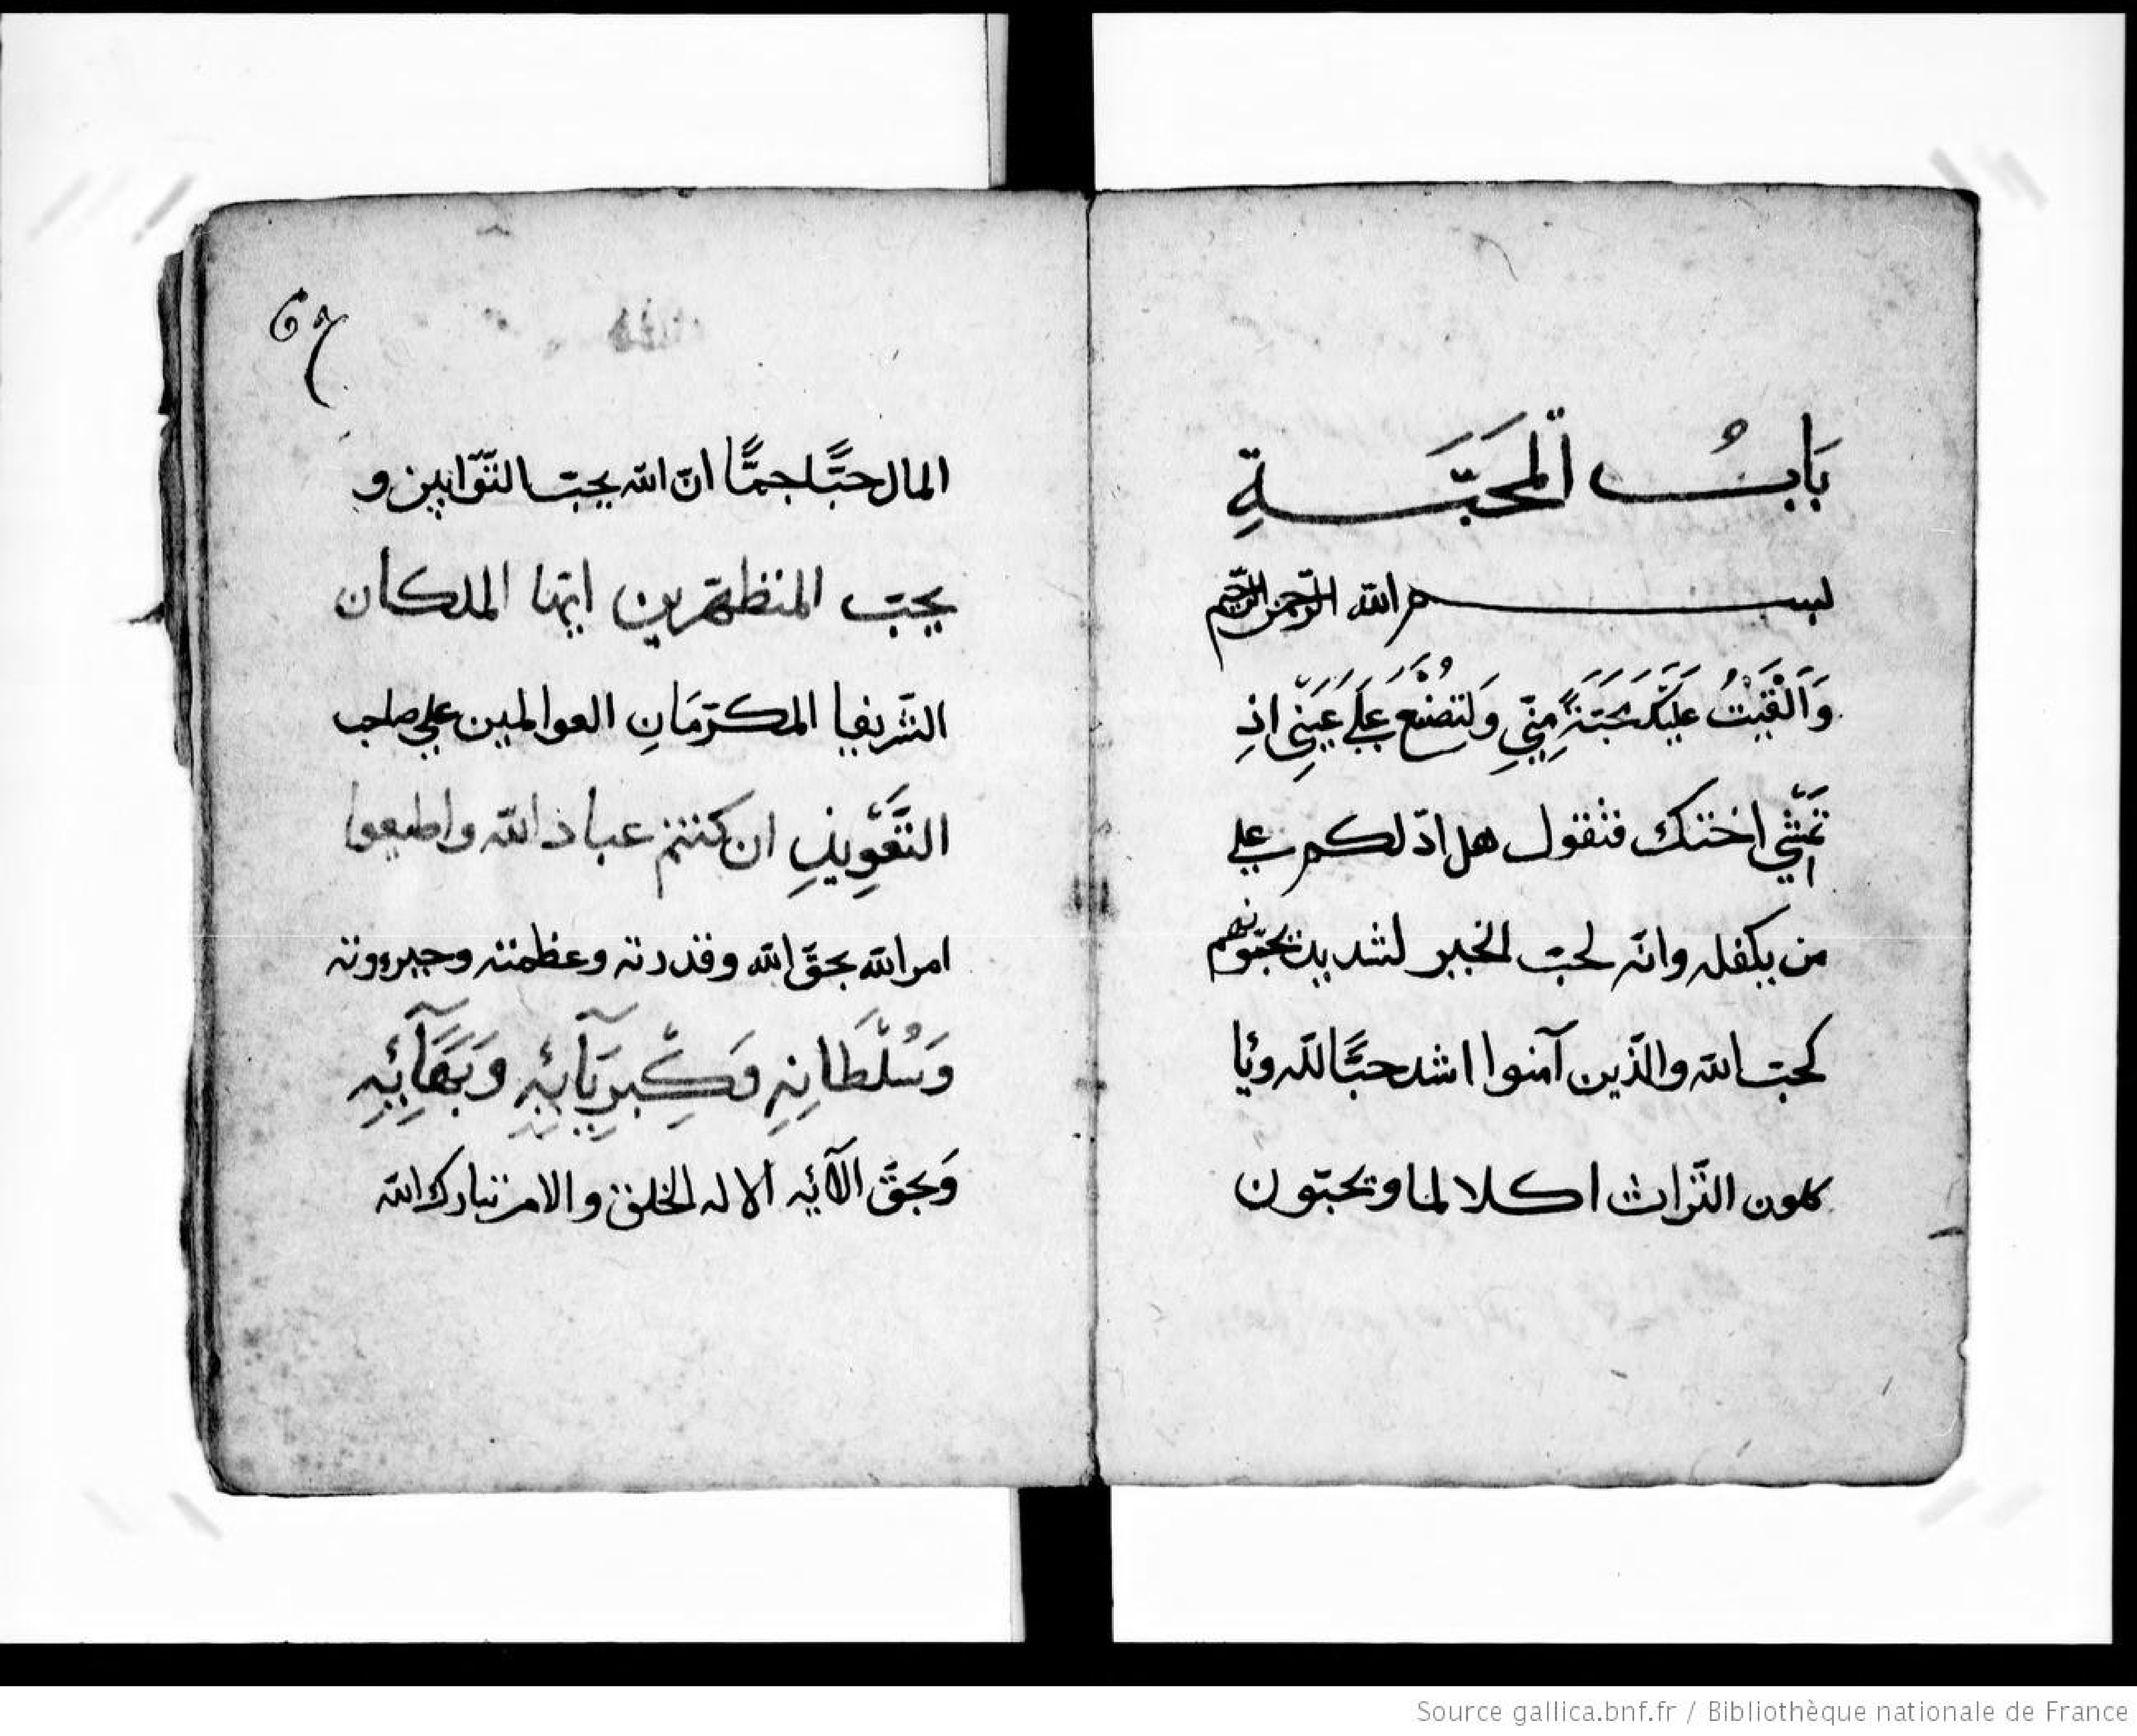 بَابُ اَلْمَحَبَّةِ
بسم الله الرّحمن الرّحيم
وَاَلْقَيْتُ عَلَيْكَ مَحَبَّةً مِنّيِ وَلِتُصْنَعَ عَلَي عَيْنِي اذِ
تَمْشِي اختك فتقول هل ادّلكم علي
من يكفله وانّه لحبّ الخير لشديد يحبّونهم
كحبّ الله والّذين آمنوا اشد حبًّا لله ويأ
كلون التّراث اكلا لما ويحبّون
المال حبًّا جمًّا انّ الله يحبّ التّوّابين و
يحبّ المتطهّرين ايّها الملكان
الشّريفيا المكرّمَانِ العوالمين علي صاحب
التَّعْوِيذِ ان كنتم عباد الله واطيعوا
امر الله بحقّ الله وقدرته وعظمته وجبروته
وَسُلْطَانِهِ وَكِبْرِيَآئِهِ وَبَهَآئِهِ
وَبحقّ آلآئِهِ الا له الخلق والامر تبارك الله
67
Source gallica.bnf.fr / Bibliothèque nationale de France